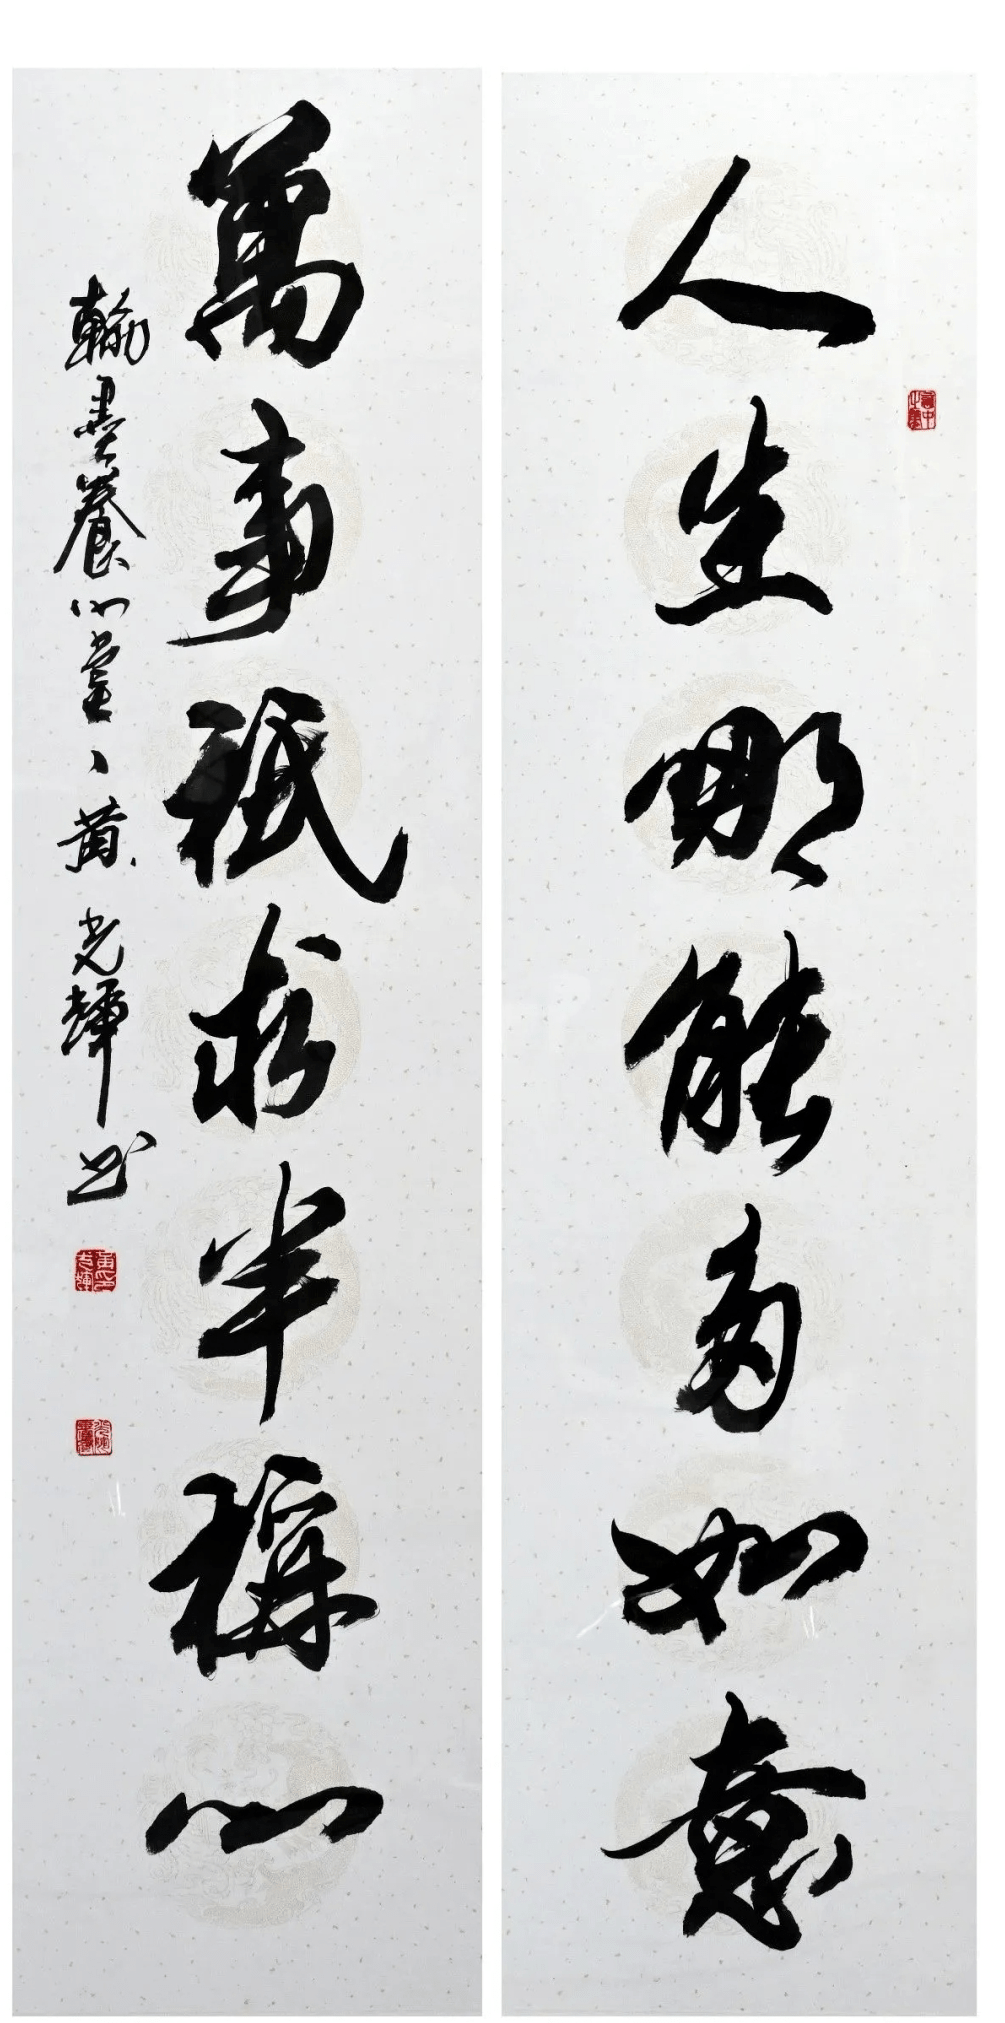 人生哪能多如意
萬事祇求半稱心
翰墨養心堂主黃光輝書